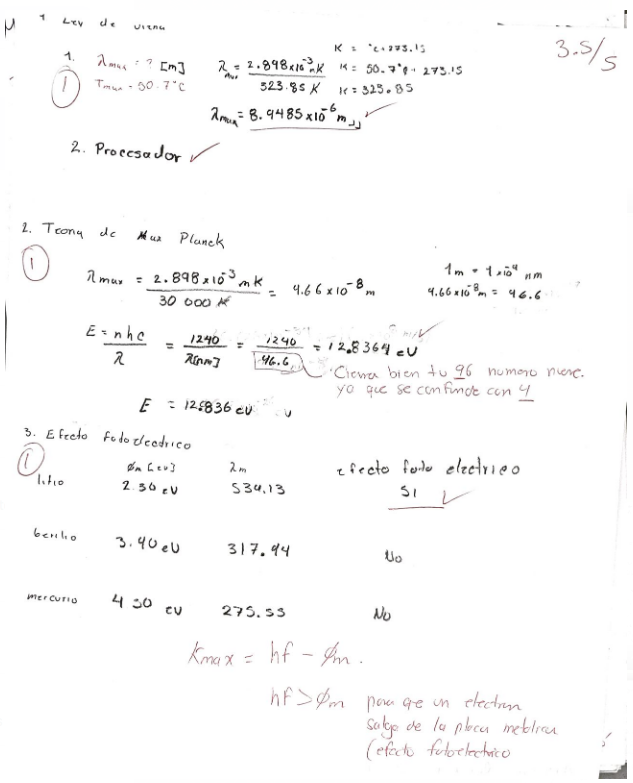 1 Ley de Viena
3.5/5
K = °c+273.15
1. λmax = ? [m]
Tmax = 50.7°C
1
λmax = 2.898x10⁻³mK / 323.85 K
K = 50.7°C + 273.15
K = 323.85
λmax = 8.9485x10⁻⁶ m
2. Procesador ✓
2. Teoria de Max Planck
1
λmax = 2.898x10⁻³ mK / 30 000 K = 9.66x10⁻⁸ m
1m = 1x10⁻⁹ nm
9.66x10⁻⁸m = 96.6
E = nhc / λ = 1240 / λ[nm] = 1240 / 96.6 = 12.8364 eV
Cierra bien tu 96 numero nueve.
ya que se confunde con 4
E = 12.836 eV
3. Efecto fotoelectrico
1
φm [eV] λm efecto foto electrico
litio 2.30 eV 534.13 SI ✓
berilio 3.90 eV 317.94 No
mercurio 4.50 eV 275.55 No
Kmax = hf - φm.
hf > φm para que un electron
salga de la placa metalica
(efecto fotoelectrico